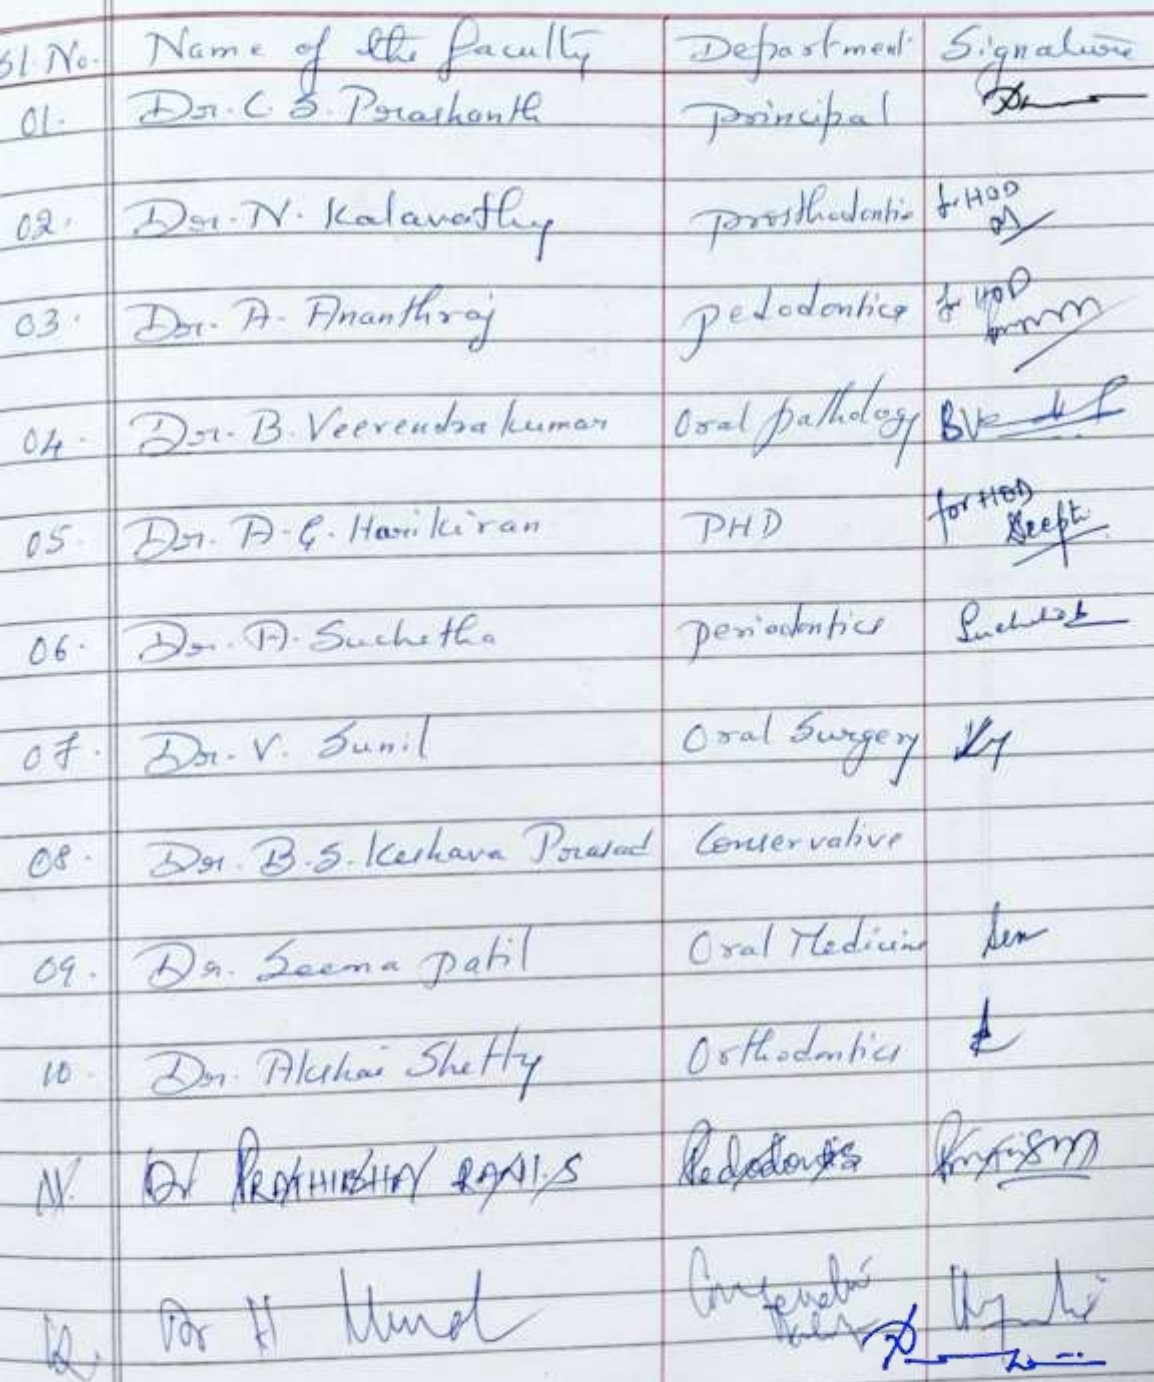 Sl. No. Name of the faculty Department Signature
01. Dr. C. S. Prashanth Principal
02. Dr. N. Kalavathy Prosthodontic for HOD
03. Dr. A. Ananthraj Pedodontics for HOD
04. Dr. B. Veerendrakumar Oral pathology BVK
05. Dr. A. G. Harikiran PHD for HOD Deepti
06. Dr. A. Suchetha Periodontics Suchetha
07. Dr. V. Sunil Oral Surgery
08. Dr. B. S. Keshava Prasad Conservative
09. Dr. Seema patil Oral Medicine
10. Dr. Akshai Shetty Orthodontics
11. Dr PRATHIBHA RANI.S Pedodontics
12. Dr H